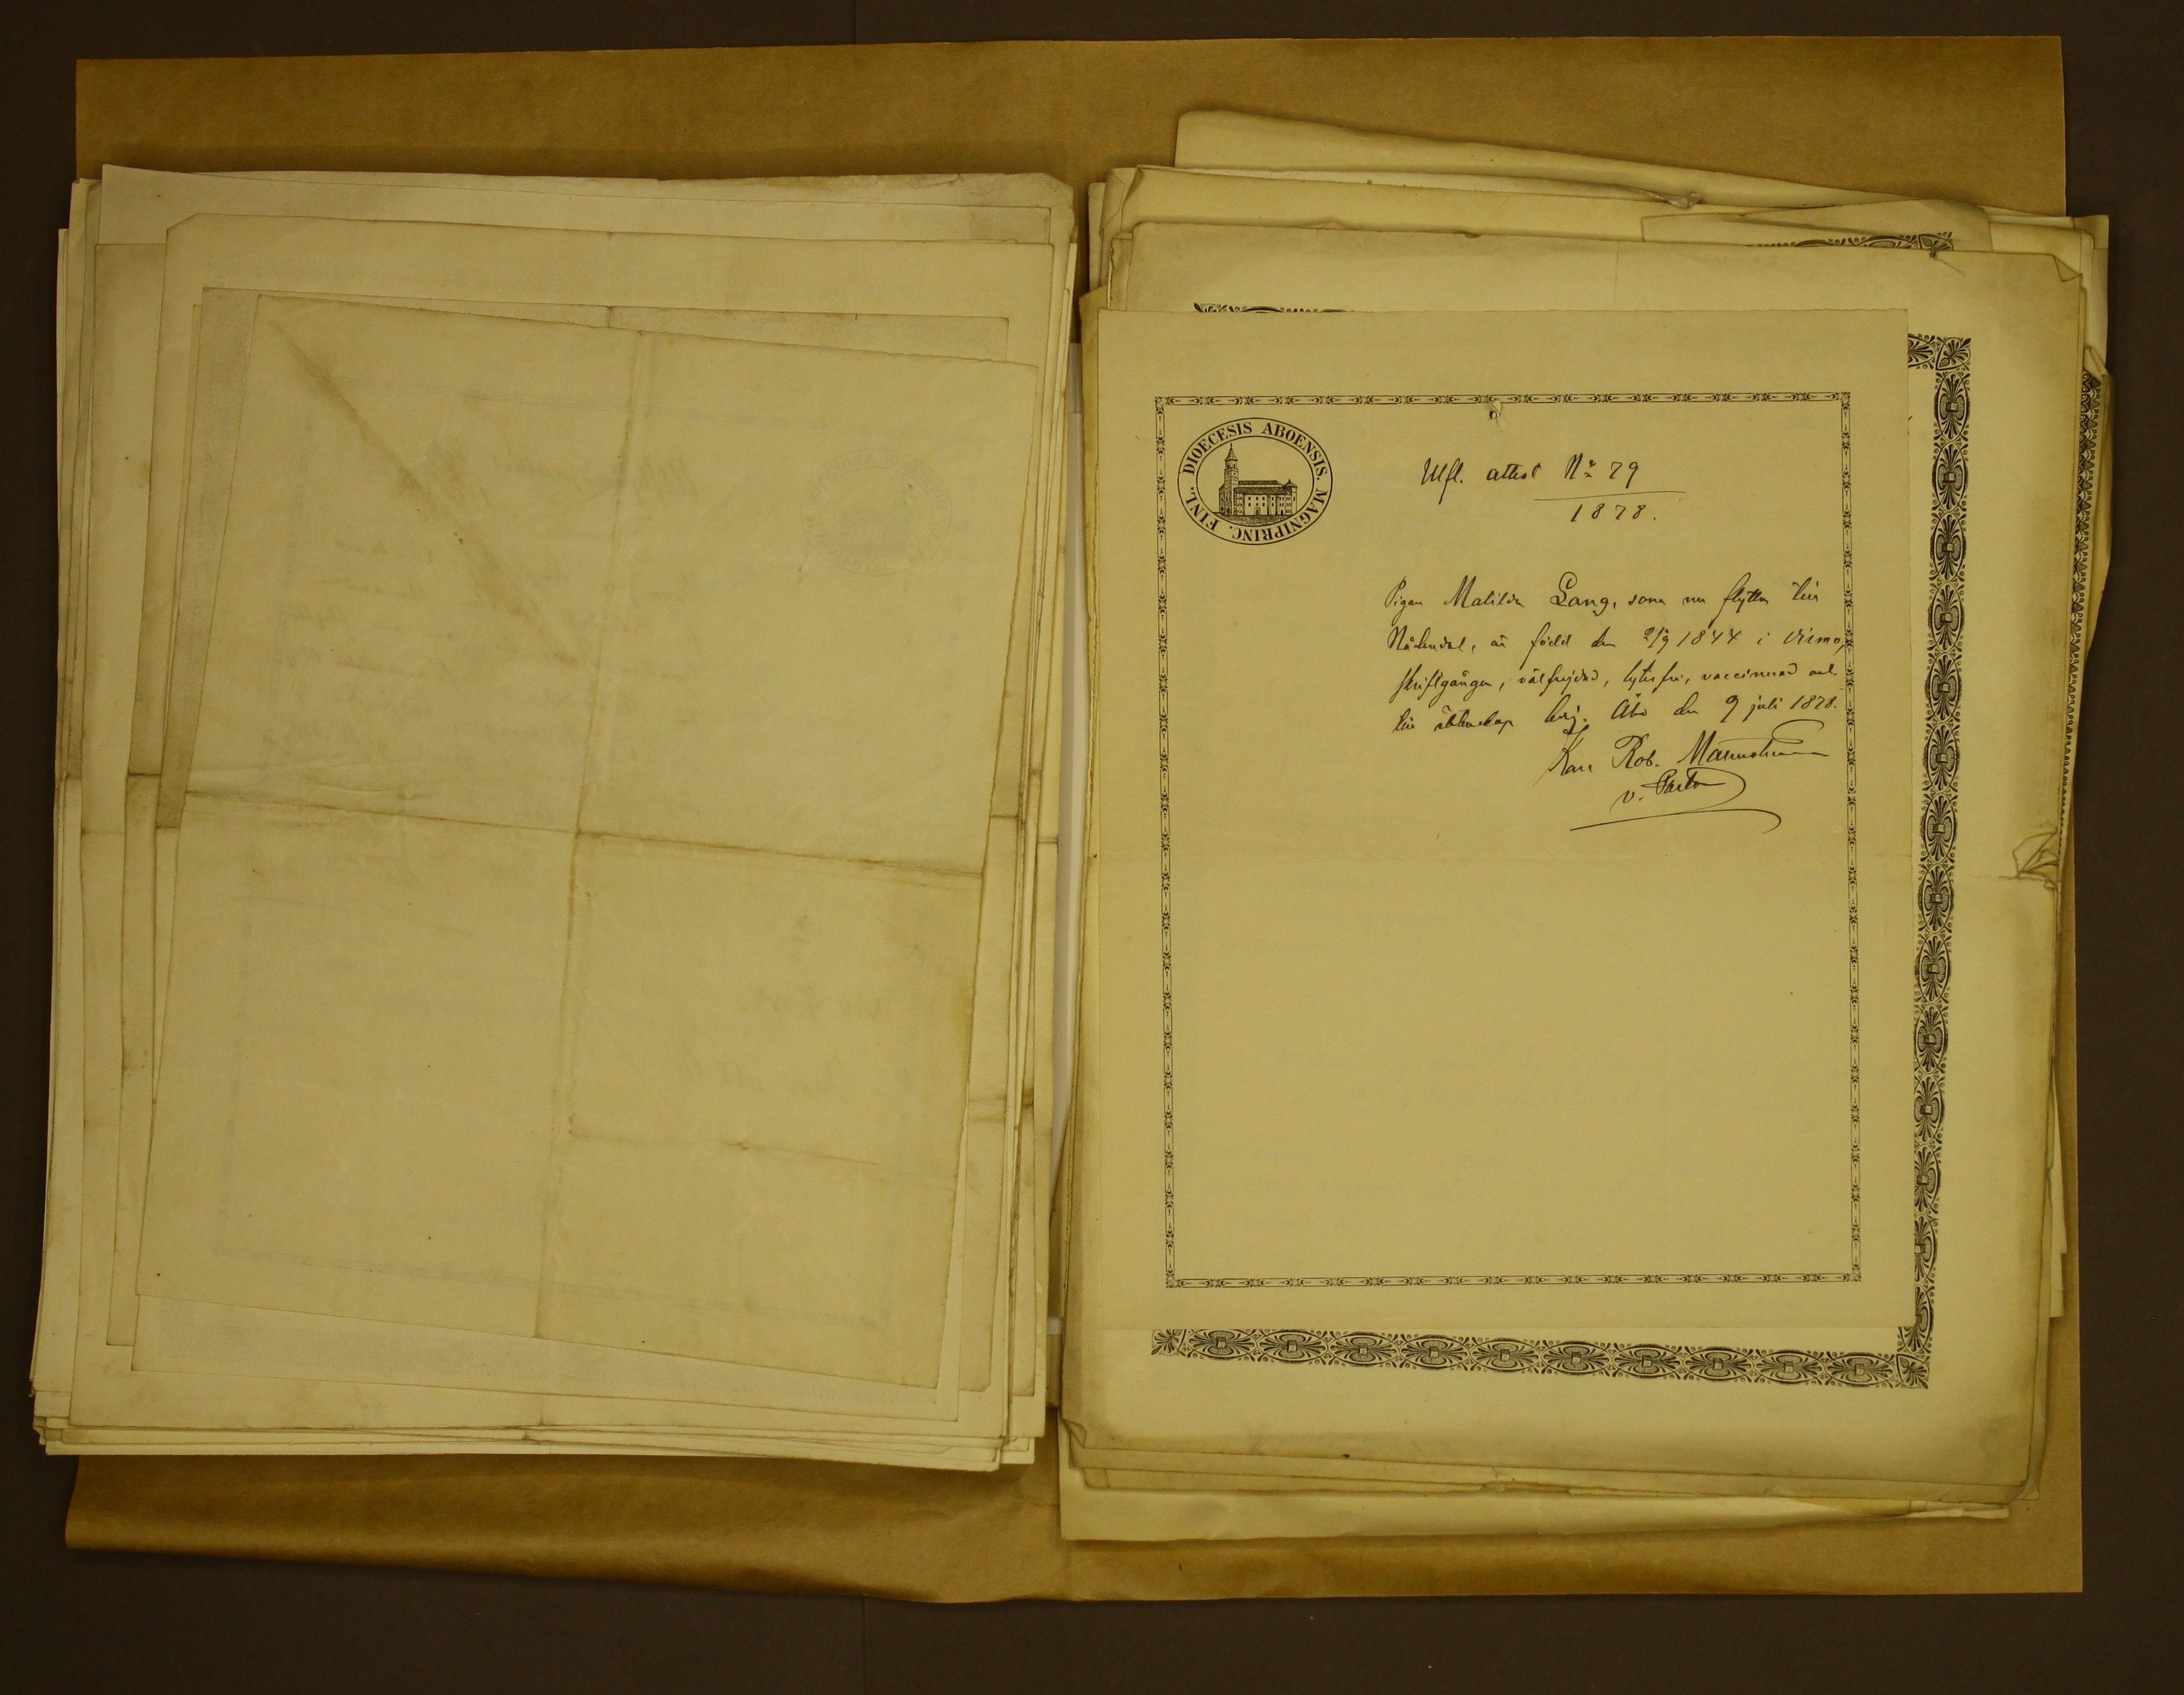 DIOECESIS ABOENSIS. MAGNIPRINC. FINL.
Utfl. attest No 79
1878.
Pigan Matilda Lang, som nu flyttar till
Nådendal, är född den 2/9 1844 i Virmo,
skriftgången, välfrejdad, lytesfri, vaccinerad och
till äktenskap ledig. Åbo den 9 juli 1878.
Karl Rob. Malmström
v. Pastor